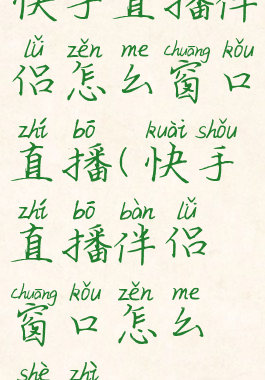 快手直播伴
lǚ zěn me chuāng kǒu
侣怎么窗口
zhí bō kuài shǒu
直播(快手
zhí bō bàn lǚ
直播伴侣
chuāng kǒu zěn me
窗口怎么
shè zhì